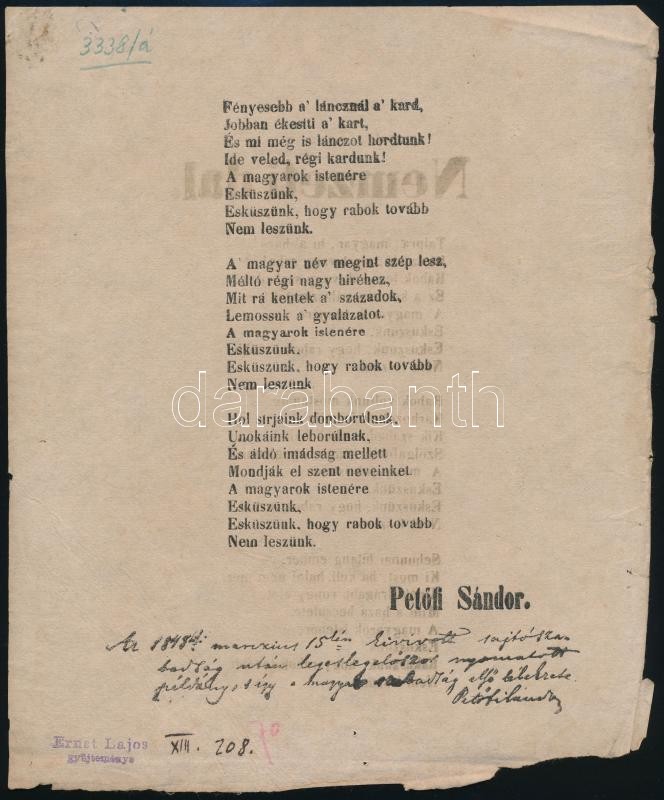 3338/á
Fényesebb a' láncznál a' kard,
Jobban ékesiti a' kart,
És mi még is lánczot hordtunk!
Ide veled, régi kardunk!
A magyarok istenére
Esküszünk,
Esküszünk, hogy rabok tovább
Nem leszünk.
A' magyar név megint szép lesz,
Méltó régi nagy hiréhez,
Mit rá kentek a' századok,
Lemossuk a' gyalázatot.
A magyarok istenére
Esküszünk,
Esküszünk, hogy rabok tovább
Nem leszünk
Hol sirjaink domborúlnak,
Unokáink leborúlnak,
És áldó imádság mellett
Mondják el szent neveinket.
A magyarok istenére
Esküszünk,
Esküszünk, hogy rabok tovább
Nem leszünk.
Petőfi Sándor.
Az 1848diki marczius 15kén kivivott sajtósza-
badság után legeslegelőször nyomatott
példány s igy a magyar szabadság első lélekzete
Petőfi Sándor
Ernst Lajos
gyűjteménye
XIII. 208.
70
darabanth